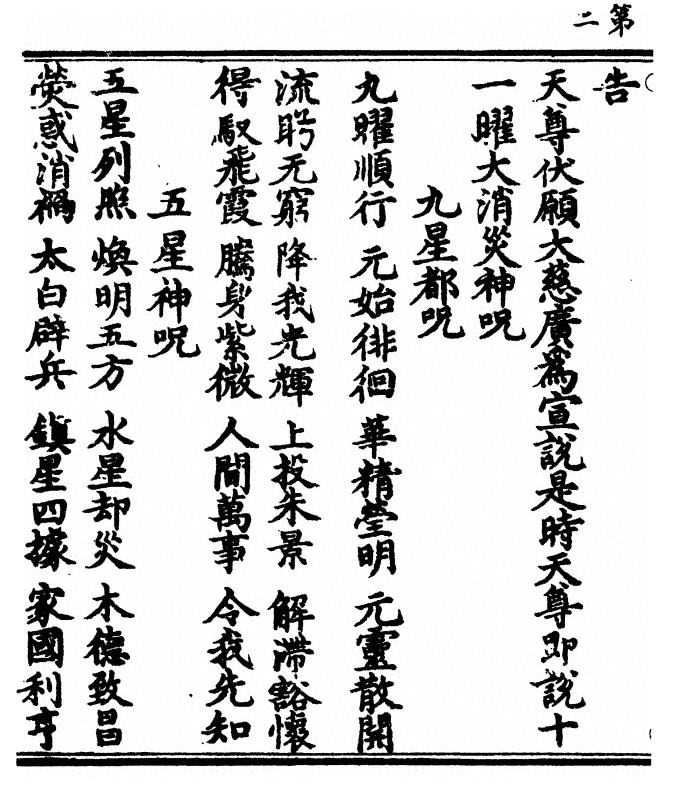 第二
告
天尊伏願大慈廣爲宣說是時天尊即說十
一曜大消災神呪
九星都呪
九曜順行 元始徘徊 華精瑩明 元靈散開
流盻无窮 降我光輝 上投朱景 解滯豁懷
得馭飛霞 騰身紫微 人間萬事 令我先知
五星神呪
五星列照 煥明五方 水星却災 木德致昌
熒惑消禍 太白辟兵 鎮星四據 家國利亨